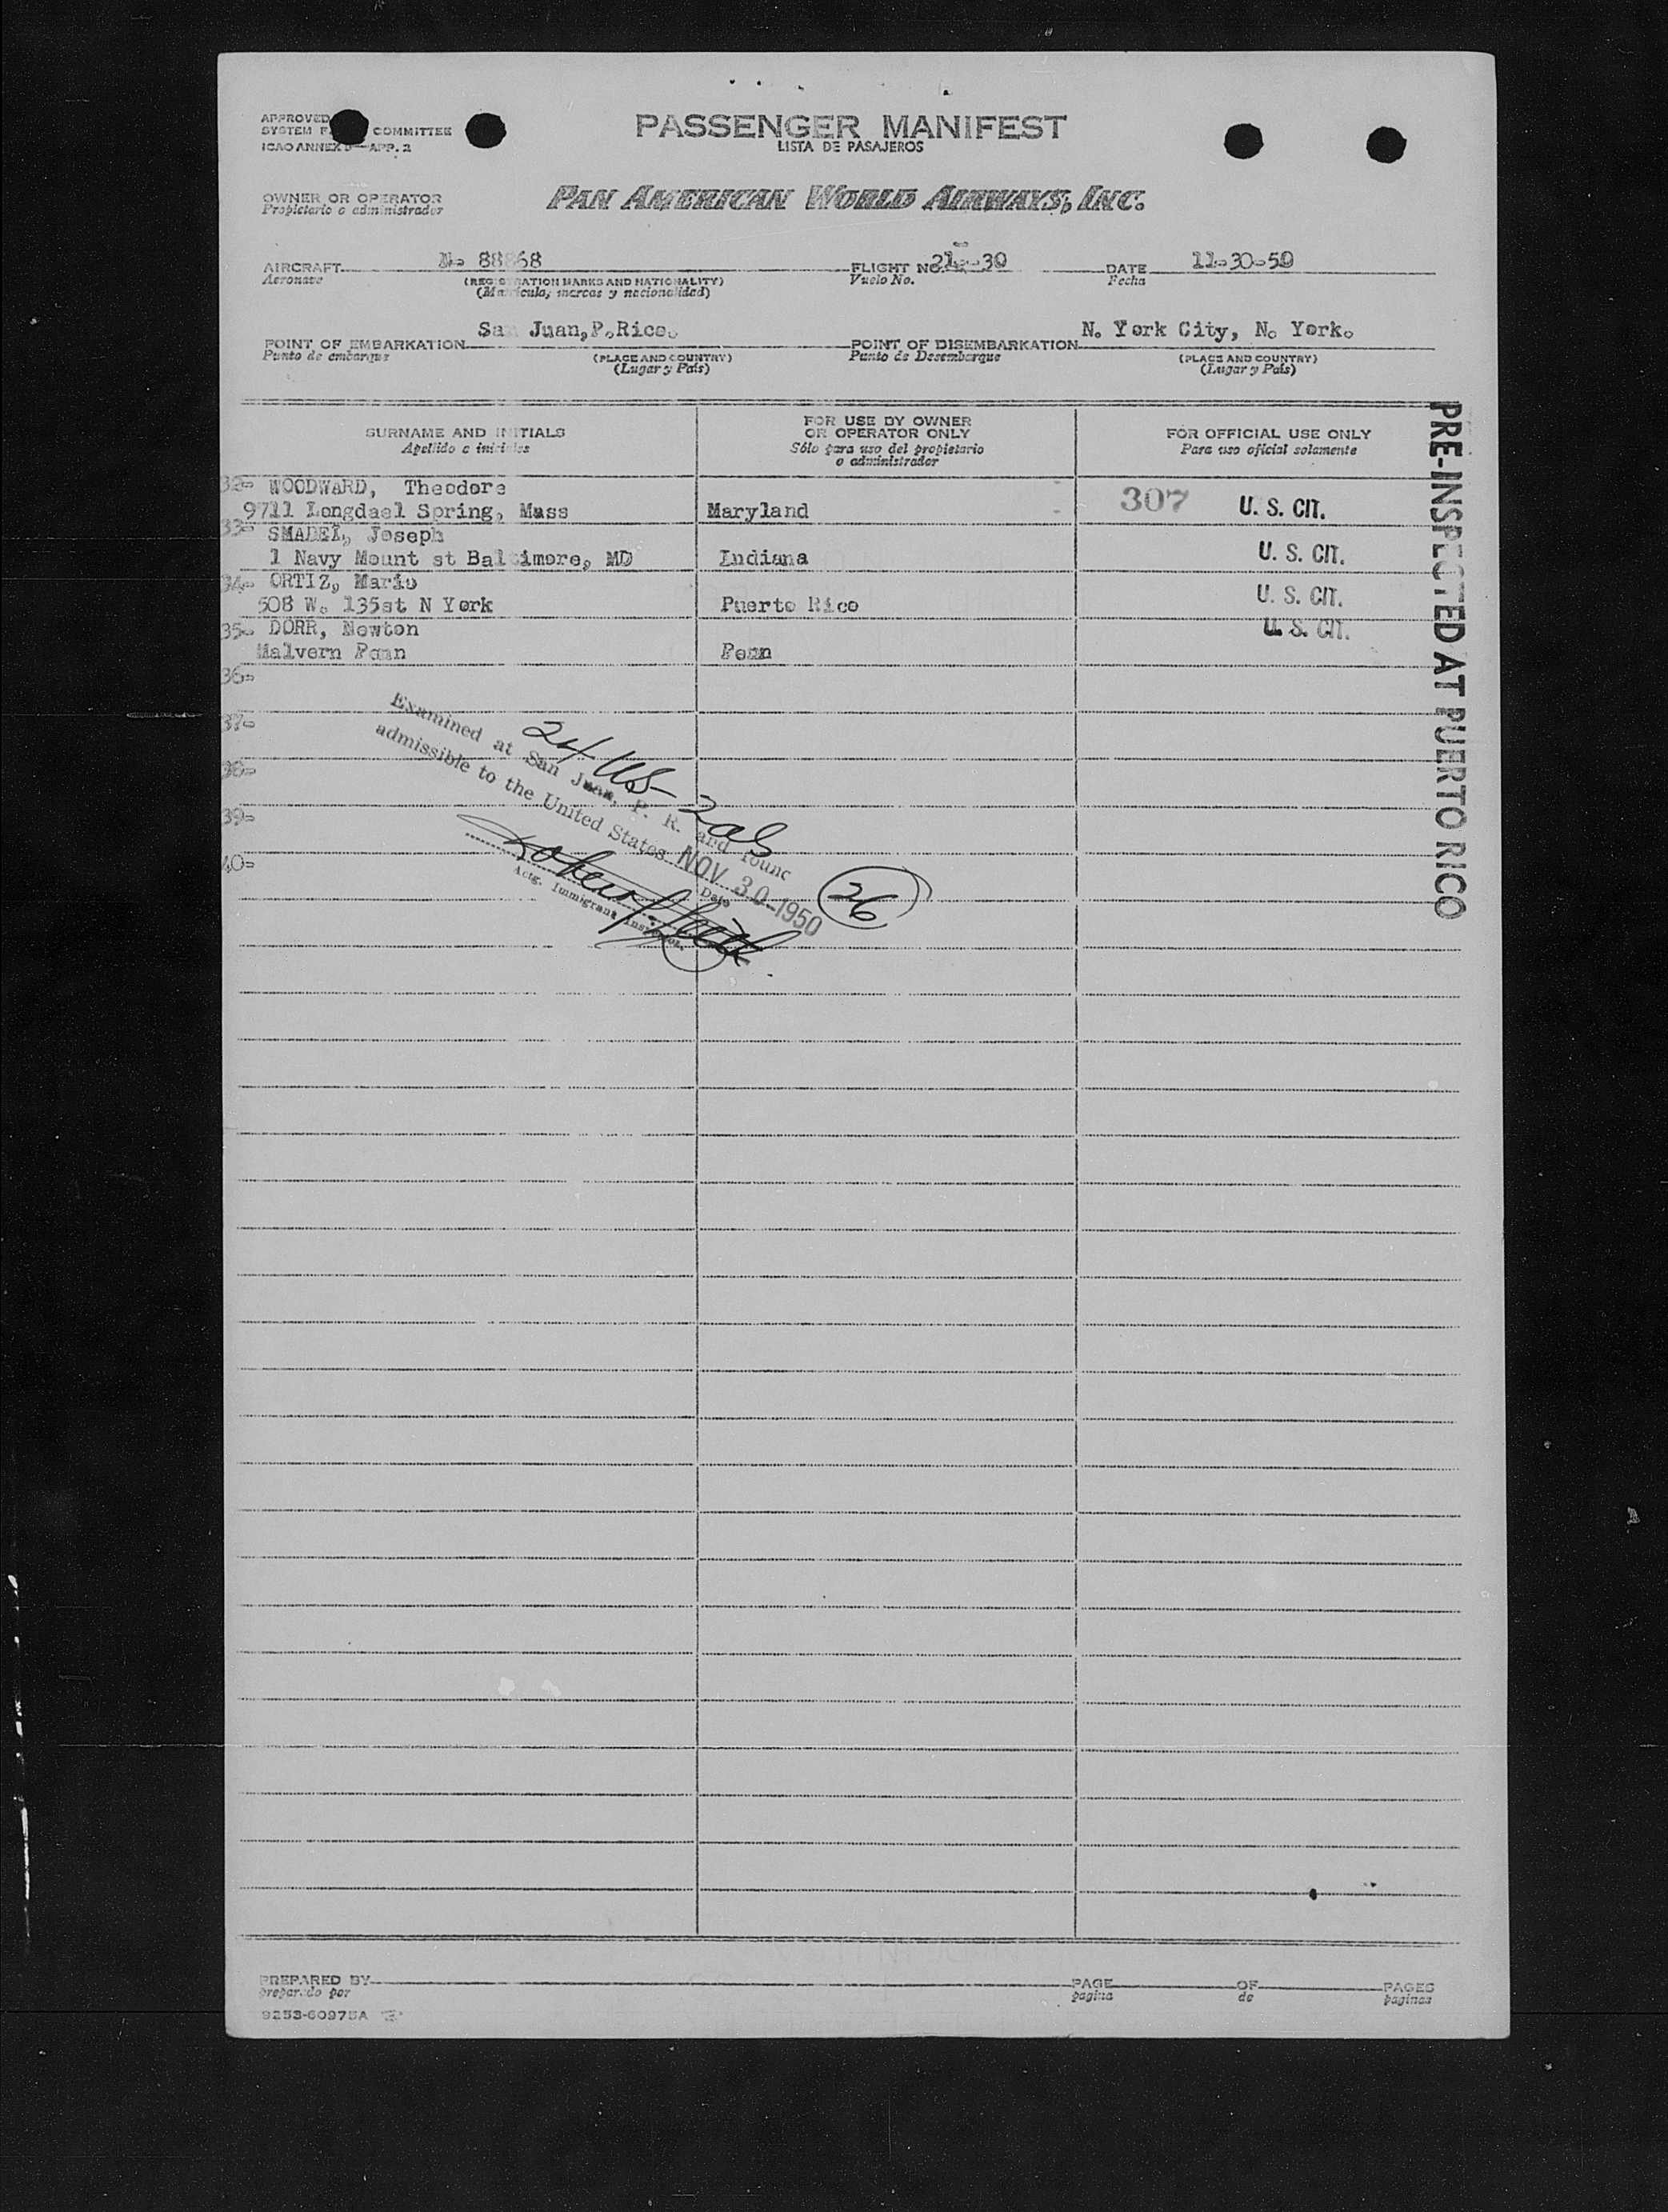 APPROVED
SYSTEM COMMITTEE
ICAO ANNEX APP. 2
PASSENGER MANIFEST
LISTA DE PASAJEROS
OWNER OR OPERATOR
Propietario o administrador
PAN AMERICAN WORLD AIRWAYS, INC.
AIRCRAFT
Aeronave
(REGISTRATION MARKS AND NATIONALITY)
(Matricula, marcas y nacionalidad)
FLIGHT NO.
Vuelo No.
DATE 11-30-50
Fecha
POINT OF EMBARKATION San Juan,P.Rico.
Punto de embarque
(PLACE AND COUNTRY)
(Lugar y País)
POINT OF DISEMBARKATION N. York City, N. York.
Punto de Desembarque
(PLACE AND COUNTRY)
(Lugar y País)
SURNAME AND INITIALS
Apellido e iniciales
FOR USE BY OWNER
OR OPERATOR ONLY
Sólo para uso del propietario
o administrador
FOR OFFICIAL USE ONLY
Para uso oficial solamente
32- WOODWARD, Theodore
9711 Longdael Spring, Mass Maryland 307 U. S. CIT.
33- SMADEL, Joseph
1 Navy Mount st Baltimore, MD Indiana U. S. CIT.
34- ORTIZ, Mario
508 W. 135st N York Puerto Rico U. S. CIT.
35- DORR, Newton U. S. CIT.
Malvern Penn Penn
36-
37-
38-
39-
40-
PRE-INSPECTED AT PUERTO RICO
Examined at San Juan, P. R. and found
admissible to the United States
NOV 30 1950
Date
Actg. Immigrant Inspector.
26
PREPARED BY
preparado por
PAGE
pagina
OF
de
PAGES
paginas
9253-60975A